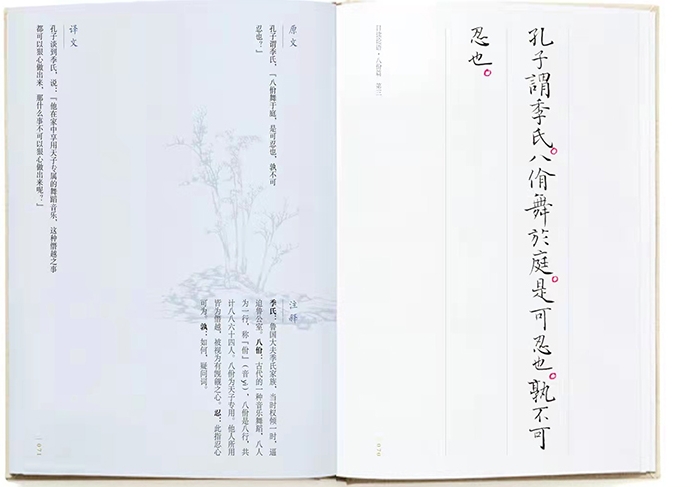 孔子謂季氏。八佾舞於庭。是可忍也。孰不可
忍也。
日读论语·八佾篇 第三
070
原文
孔子谓季氏，「八佾舞于庭，是可忍也，孰不可
忍也？」
注释
季氏：鲁国大夫季氏家族，当时权倾一时，逼
迫鲁公室。八佾：古代的一种音乐舞蹈，八人
为一行，称「佾」（音yì），八佾是八行，共
计八八六十四人。八佾为天子专用。他人所用
皆为僭越，被视为有觊觎之心。忍：此指忍心
可为。孰：如何，疑问词。
译文
孔子谈到季氏，说：「他在家中享用天子专属的舞蹈音乐，这种僭越之事
都可以狠心做出来，那什么事不可以狠心做出来呢？」
071